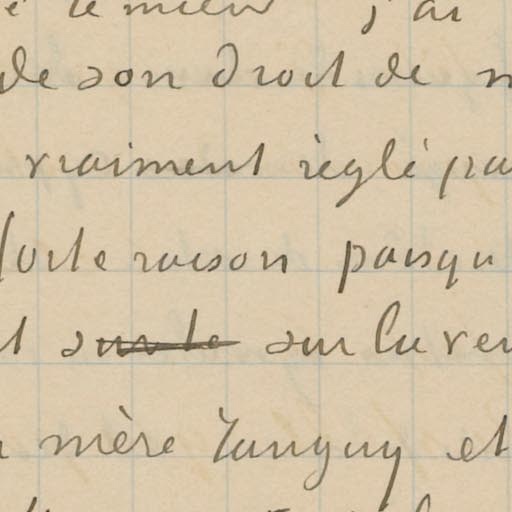 j'ai
de son droit de
vraiment règlé pa
forte raison puisqu
t sur le sur la ven
mère Tanguy et